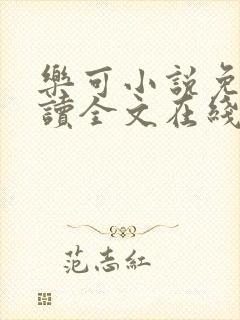 樂可小說免
讀全文在綫
范志紅